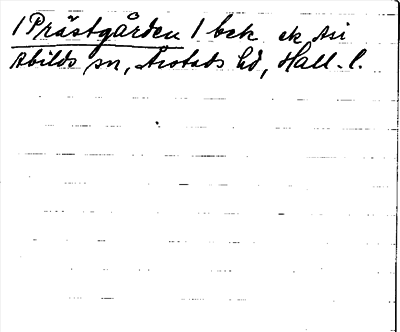 1 Prästgården 1 bck ek Av
Abilds sn, Årstads hd, Hall. l.